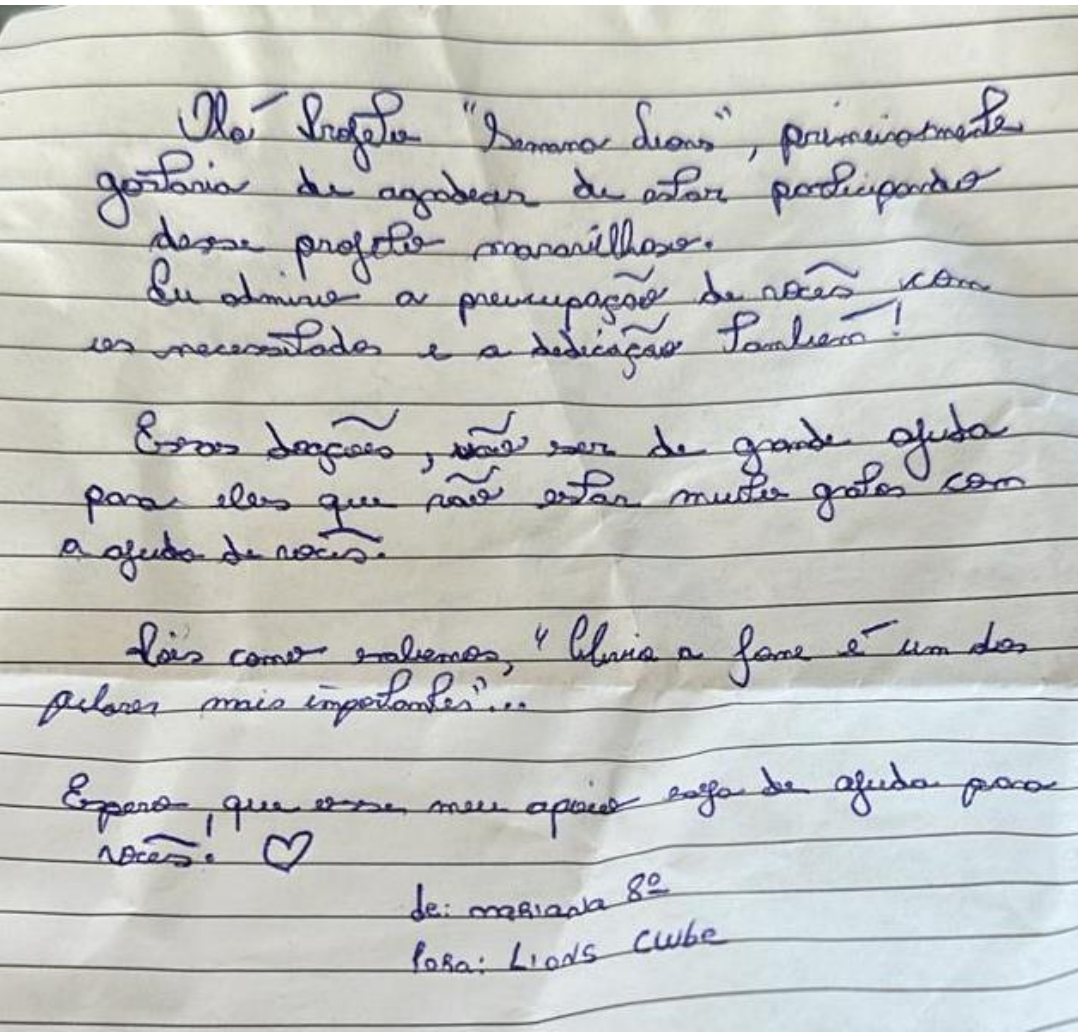 Olá Projeto "Semana Lions", primeiramente
gostaria de agradecer de estar participando
desse projeto maravilhoso.
Eu admiro a preucupação de vocês com
os necessitados e a dedicação também!
Essas doações, vão ser de grande ajuda
para eles que vão estar muito gratos com
a ajuda de vocês.
Pois como sabemos, "Alivia a fome é um dos
pilares mais importantes"...
Espero que esse meu apoio seja de ajuda para
vocês! ♡
de: Mariana 8º
Para: Lions Clube